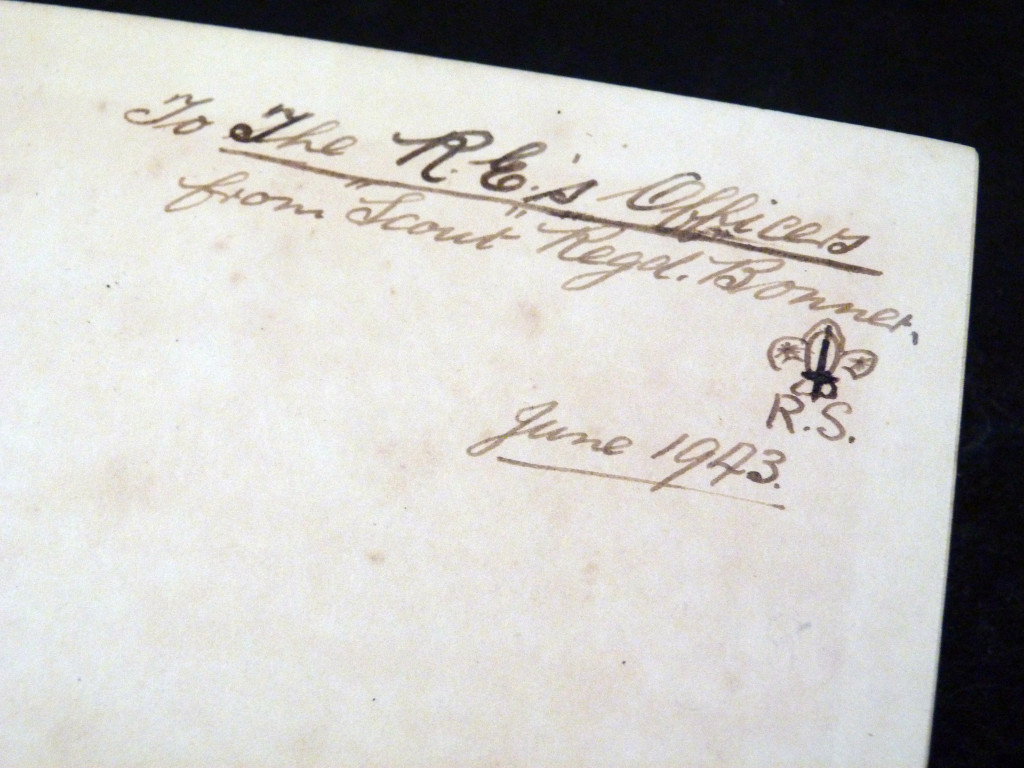 To The R.E.'s Officers
from "Scout" Regd. Bonner,
R.S.
June 1943.